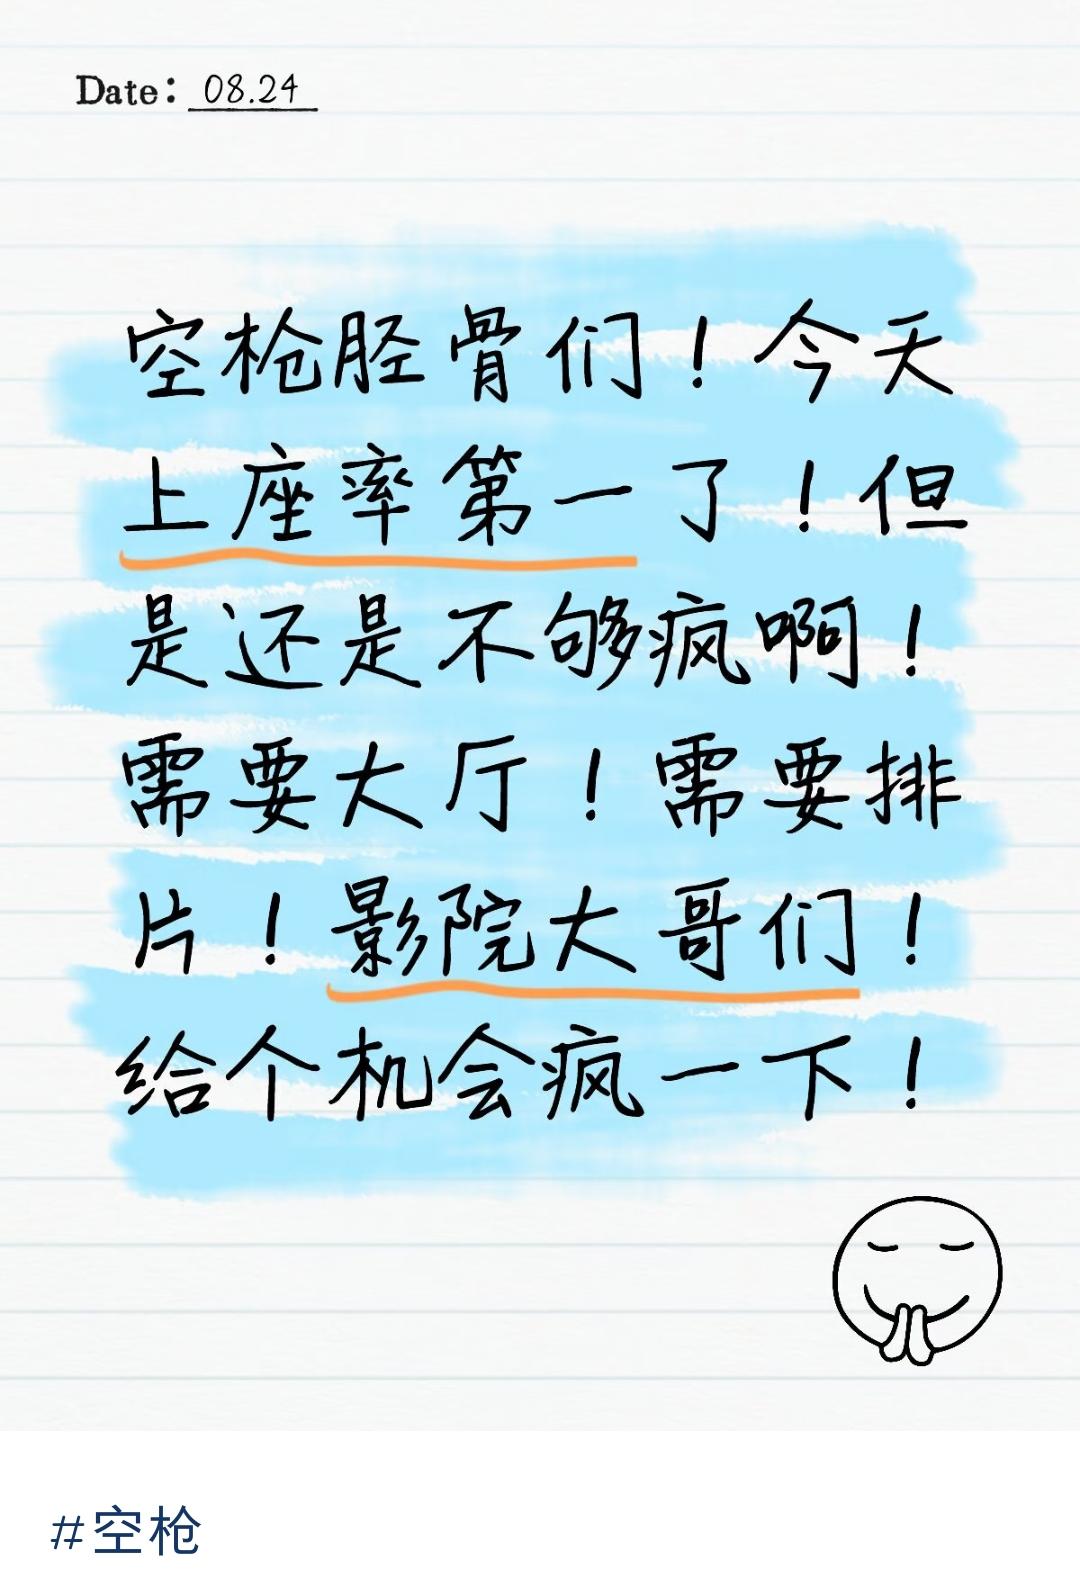 Date: 08.24
空枪胫骨们！今天
上座率第一了！但
是还是不够疯啊！
需要大厅！需要排
片！影院大哥们！
给个机会疯一下！
#空枪